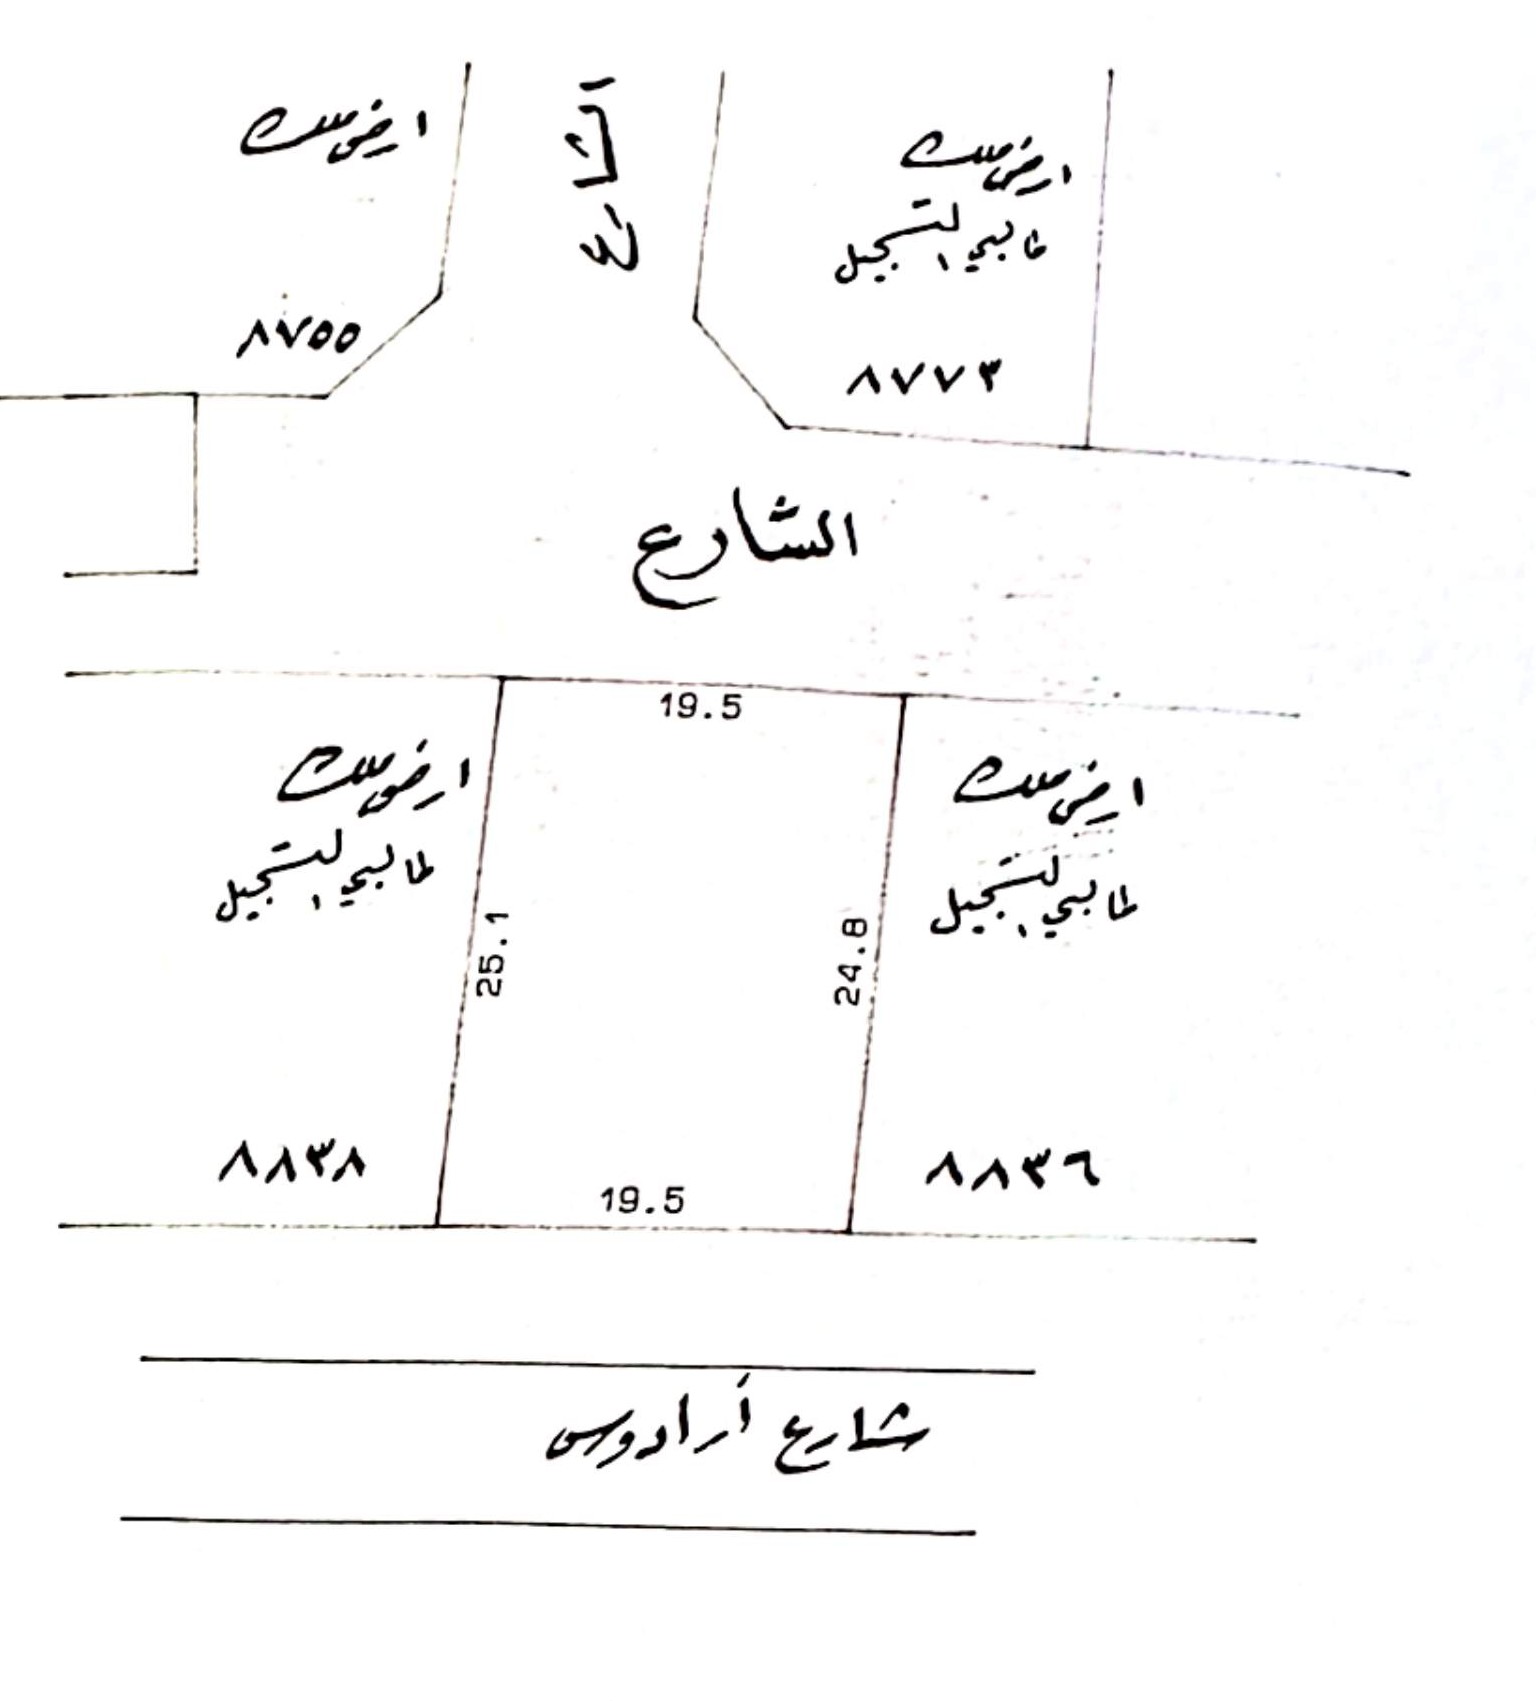 ارض ملك
٨٧٥٥
الشارع
ارض ملك
طالبي التسجيل
٨٧٧٣
الشارع
19.5
ارض ملك
طالبي التسجيل
25.1
24.8
ارض ملك
طالبي التسجيل
٨٨٣٨
19.5
٨٨٣٦
شارع أرادوس